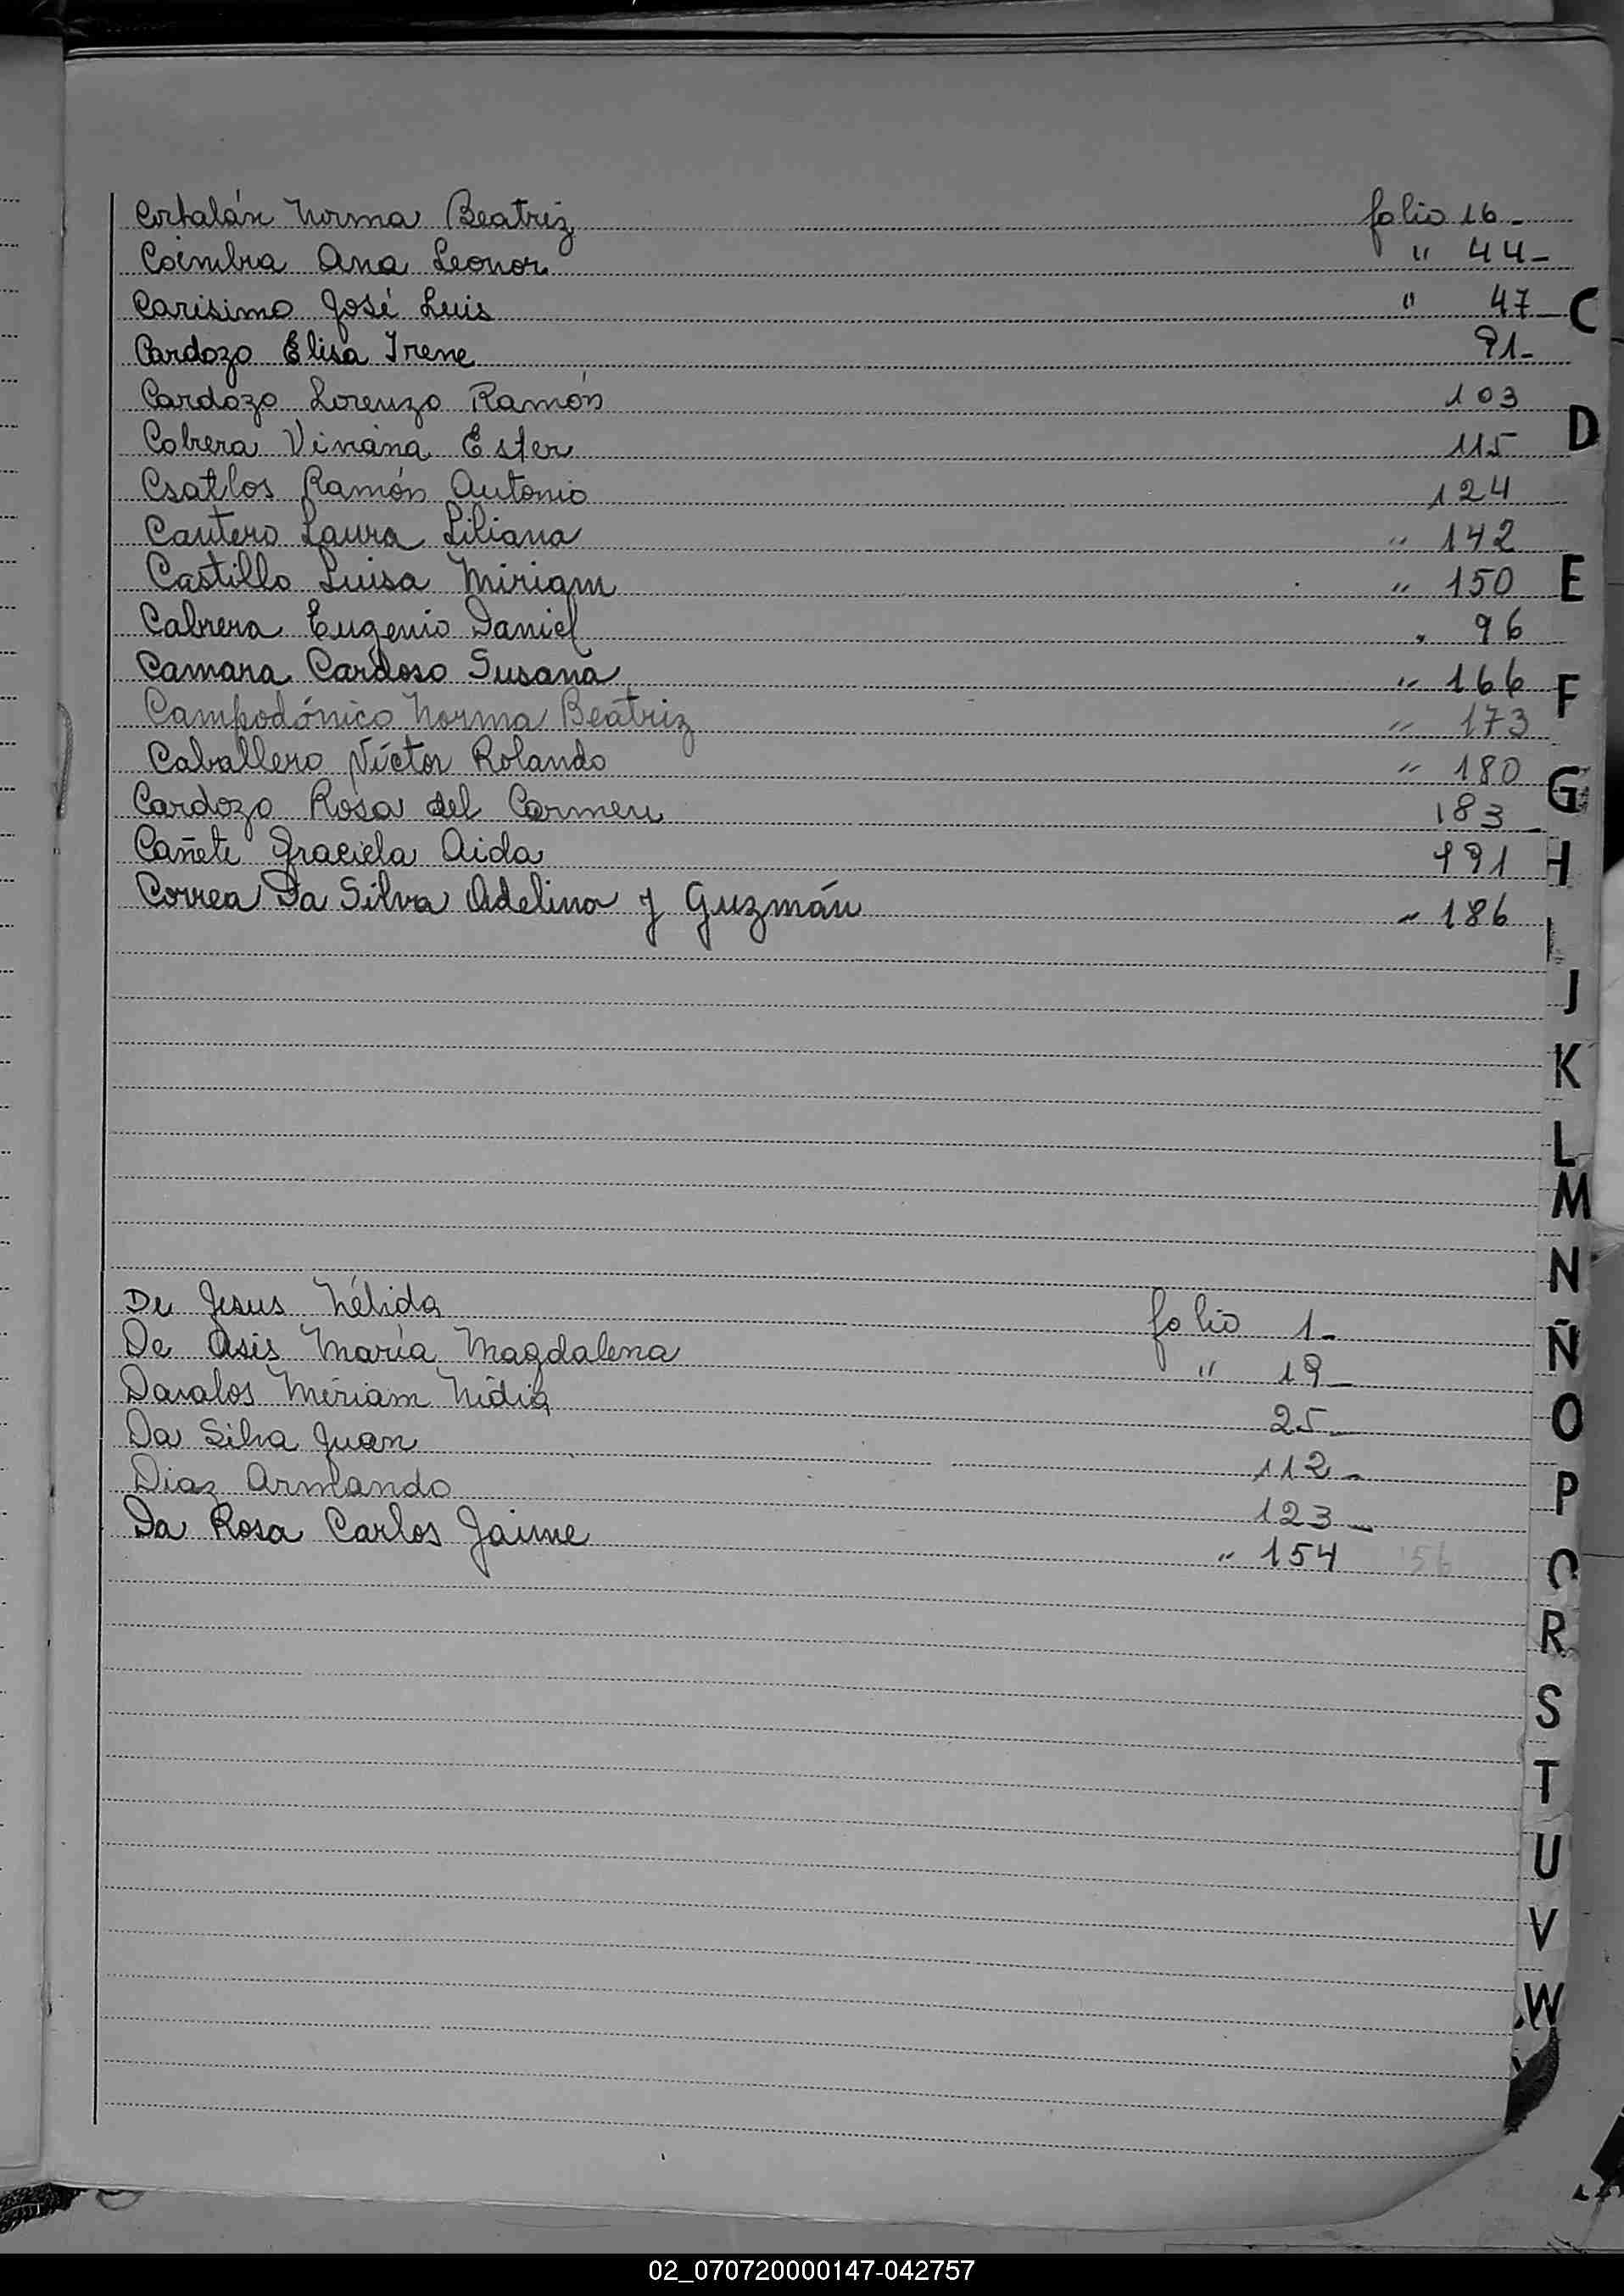 Cortalán Norma Beatriz folio 16-
Coimbra Ana Leonor " 44-
Carisimo José Luis " 47-
Cardozo Elisa Irene 91-
Cardozo Lorenzo Ramón 103
Cabrera Viviana Ester 115
Csatlos Ramón Antonio 124
Cantero Laura Liliana " 142
Castillo Luisa Miriam " 150
Cabrera Eugenio Daniel " 96
Camara Cardoso Susana " 166
Campodónico Norma Beatriz " 173
Caballero Víctor Rolando " 180
Cardozo Rosa del Carmen 183-
Cañete Graciela Aida 191
Correa Da Silva Adelino y Guzmán " 186
De Jesus Nélida folio 1-
De Asis María Magdalena " 19-
Davalos Miriam Nidia 25-
Da Silva Juan 112-
Diaz Armando 123-
Da Rosa Carlos Jaime " 154 156
C
D
E
F
G
H
I
J
K
L
M
N
Ñ
O
P
Q
R
S
T
U
V
W
02_070720000147-042757